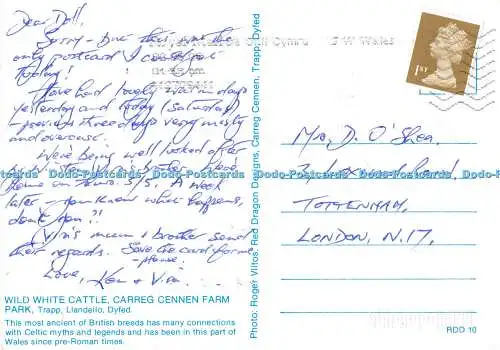 Dear Doll,
Sorry - but this was the
only postcard I could get
today!
Have had lovely warm days
yesterday and today (Saturday)
- previous three days very misty
and overcast.
We've been well looked after
home on 3/5. A week
later - you know what happens,
don't you?!
Vin's mum & brother send
their regards. Save the card for me
- please!
Love, Ken & Vin.
WILD WHITE CATTLE, CARREG CENNEN FARM
PARK, Trapp, Llandello, Dyfed
This most ancient of British breeds has many connections
with Celtic myths and legends and has been in this part of
Wales since pre-Roman times.
Photo: Roger Vlitos: Red Dragon Designs, Carreg Cennen, Trapp, Dyfed
Cymru S W Wales
1ST
Mrs. D. O'Shea,
TOTTENHAM,
LONDON, N.17.
RDD 10
Dodo-Postcards Dodo-Postcards Dodo-Postcards Dodo-Postcards Dodo-Postcards